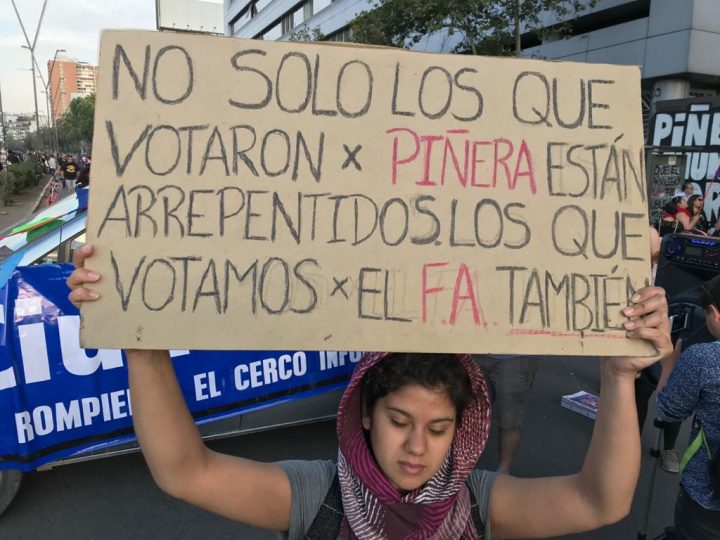 NO SOLO LOS QUE
VOTARON X PIÑERA ESTÁN
ARREPENTIDOS. LOS QUE
VOTAMOS X EL F.A. TAMBIÉN
EL CERCO
PIÑE